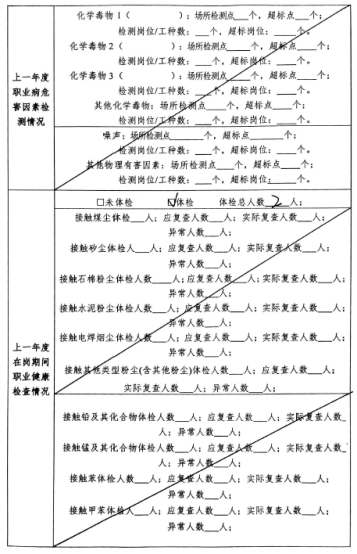 上一年度
职业病危
害因素检
测情况
化学毒物1（ ）：场所检测点___个，超标点___个；
检测岗位/工种数：___个，超标岗位：___个；
化学毒物2（ ）：场所检测点___个，超标点___个；
检测岗位/工种数：___个，超标岗位：___个；
化学毒物3（ ）：场所检测点___个，超标点___个；
检测岗位/工种数：___个，超标岗位：___个；
其他化学毒物：场所检测点___个，超标点___个；
检测岗位/工种数：___个，超标岗位：___个；
噪声：场所检测点___个，超标点___个；
检测岗位/工种数：___个，超标岗位：___个；
其他物理有害因素：场所检测点___个，超标点___个；
检测岗位/工种数：___个，超标岗位：___个；
上一年度
在岗期间
职业健康
检查情况
□未体检 ☑体检 体检总人数 2 人；
接触煤尘体检___人；应复查人数___人；实际复查人数___人；
异常人数___人；
接触矽尘体检人___人；应复查人数___人；实际复查人数___人；
异常人数___人；
接触石棉粉尘体检人数___人；应复查人数___人；实际复查人数___人；
异常人数___人；
接触水泥粉尘体检人数___人；应复查人数___人；实际复查人数___人；
异常人数___人；
接触电焊烟尘体检人数___人；应复查人数___人；实际复查人数___人；
异常人数___人；
接触其他类型粉尘(含其他粉尘)体检人数___人；应复查人数___人；
实际复查人数___人；异常人数___人；
接触铅及其化合物体检人数___人；应复查人数___人；实际复查人数_
人；异常人数___人；
接触锰及其化合物体检人数___人；应复查人数___人；实际复查人数_
人；异常人数___人；
接触苯体检人数___人；应复查人数___人；实际复查人数___人；
异常人数___人；
接触甲苯体检人___人；应复查人数___人；实际复查人数___人；
异常人数___人；